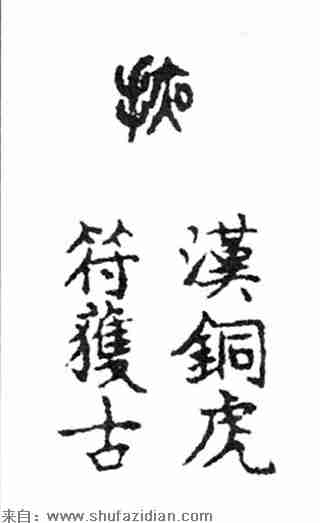 掖
漢銅虎
符獲古
来自：www.shufazidian.com